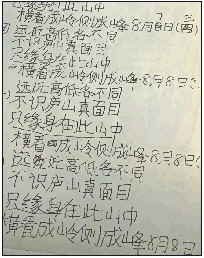 只缘身在此山中
横看成岭侧成峰8月8日(四)
远近高低各不同
不识庐山真面目
只缘身在此山中
横看成岭侧成峰8月8日
远近高低各不同
不识庐山真面目
只缘身在此山中
横看成岭侧成峰8月8日
远近高低各不同
不识庐山真面目
只缘身在此山中
横看成岭侧成峰8月8日